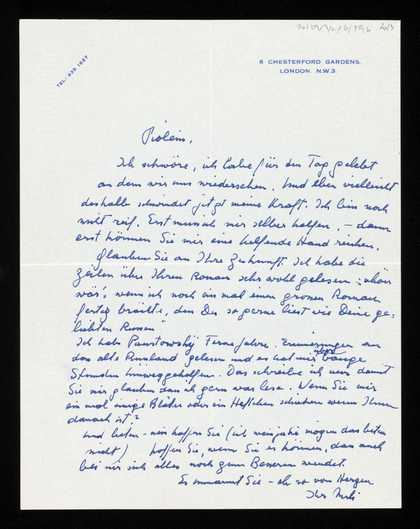 TEL: 435 1657
6 CHESTERFORD GARDENS.
LONDON. N.W.3.
Ich schwöre, ich habe für den Tag gelebt
an dem wir uns wiedersehen. Und eben vielleicht
deshalb schwindet jetzt meine Kraft. Ich bin noch
nicht reif. Erst muss ich mir selber helfen, – dann
erst können Sie mir eine helfende Hand reichen.
Glauben Sie an Ihre Zukunft. Ich habe die
Zeilen über Ihren Roman sehr wohl gelesen: "schön
wär's, wenn ich noch einmal einen grossen Roman
fertig brächte, den Du so gerne liest wie Deine ge-
liebten Russen"
Ich habe Paustowskij Ferne Jahre. Erinnerungen an
das alte Russland gelesen und es hat mir über bange
Stunden hinweggeholfen. Das schreibe ich nur damit
Sie mir glauben dass ich gern was lese. Wenn Sie mir
einmal einige Blätter oder ein Heftchen schicken wenn Ihnen
danach ist?
Und beten – nein hoffen Sie (ich
nicht) hoffen Sie, wenn Sie es können, dass auch
bei mir sich alles noch zum Besseren wendet.
Es umarmt Sie – eh so von Herzen
Ihr